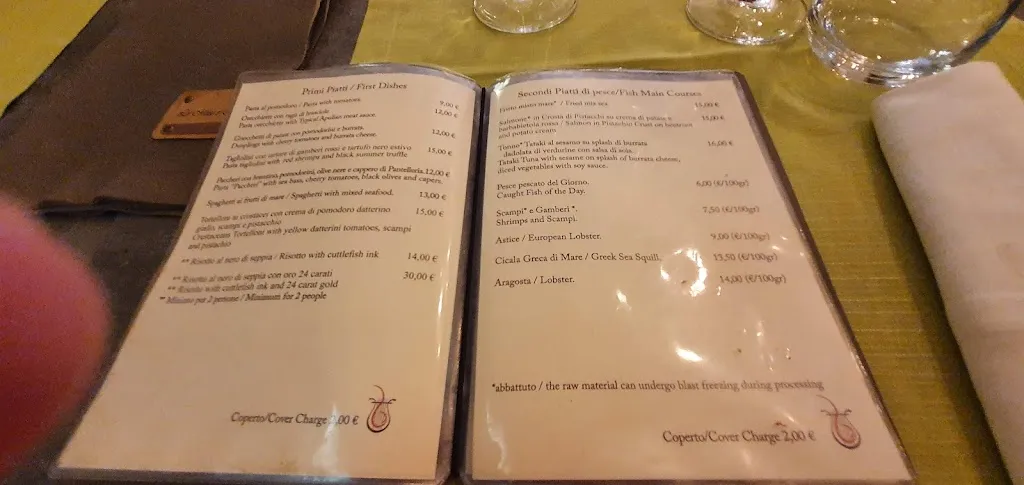 Primi Piatti / First Dishes
Pasta al pomodoro / Pasta with tomatoes. 9,00 €
Orecchiette con ragù di brasciole 12,00 €
Pasta orecchiette with Typical Apulian meat sauce.
Gnocchetti di patate con pomodorini e burrata. 12,00 €
Dumplings with cherry tomatoes and burrata cheese.
Tagliolini con tartare di gamberi rossi e tartufo nero estivo 15,00 €
Pasta tagliolini with red shrimps and black summer truffle
Paccheri con branzino, pomodorini, olive nere e cappero di Pantelleria. 12,00 €
Pasta "Paccheri" with sea bass, cherry tomatoes, black olives and capers.
Spaghetti ai frutti di mare / Spaghetti with mixed seafood. 13,00 €
Tortelloni ai crostacei con crema di pomodoro datterino 15,00 €
giallo, scampi e pistacchio
Crustaceans Tortelloni with yellow datterini tomatoes, scampi
and pistachio
** Risotto al nero di seppia / Risotto with cuttlefish ink 14,00 €
** Risotto al nero di seppia con oro 24 carati 30,00 €
** Risotto with cuttlefish ink and 24 carat gold
** Minimo per 2 persone / Minimum for 2 people
Coperto/Cover Charge 2,00 €
Secondi Piatti di pesce/Fish Main Courses
Fritto misto mare* / Fried mix sea.
Salmone* in Crosta di Pistacchi su crema di patate e 15,00 €
barbabietola rossa / Salmon in Pistachio Crust on beetroot
and potato cream
Tonno* Tataki al sesamo su splash di burrata 16,00 €
dadolata di verdurine con salsa di soia.
Tataki Tuna with sesame on splash of burrata cheese,
diced vegetables with soy sauce.
Pesce pescato del Giorno. 6,00 (€/100gr)
Caught Fish of the Day.
Scampi* e Gamberi *. 7,50 (€/100gr)
Shrimps and Scampi.
Astice / European Lobster. 9,00 (€/100gr)
Cicala Greca di Mare / Greek Sea Squill. 13,50 (€/100gr)
Aragosta / Lobster. 14,00 (€/100gr)
*abbattuto / the raw material can undergo blast freezing during processing
Coperto/Cover Charge 2,00 €